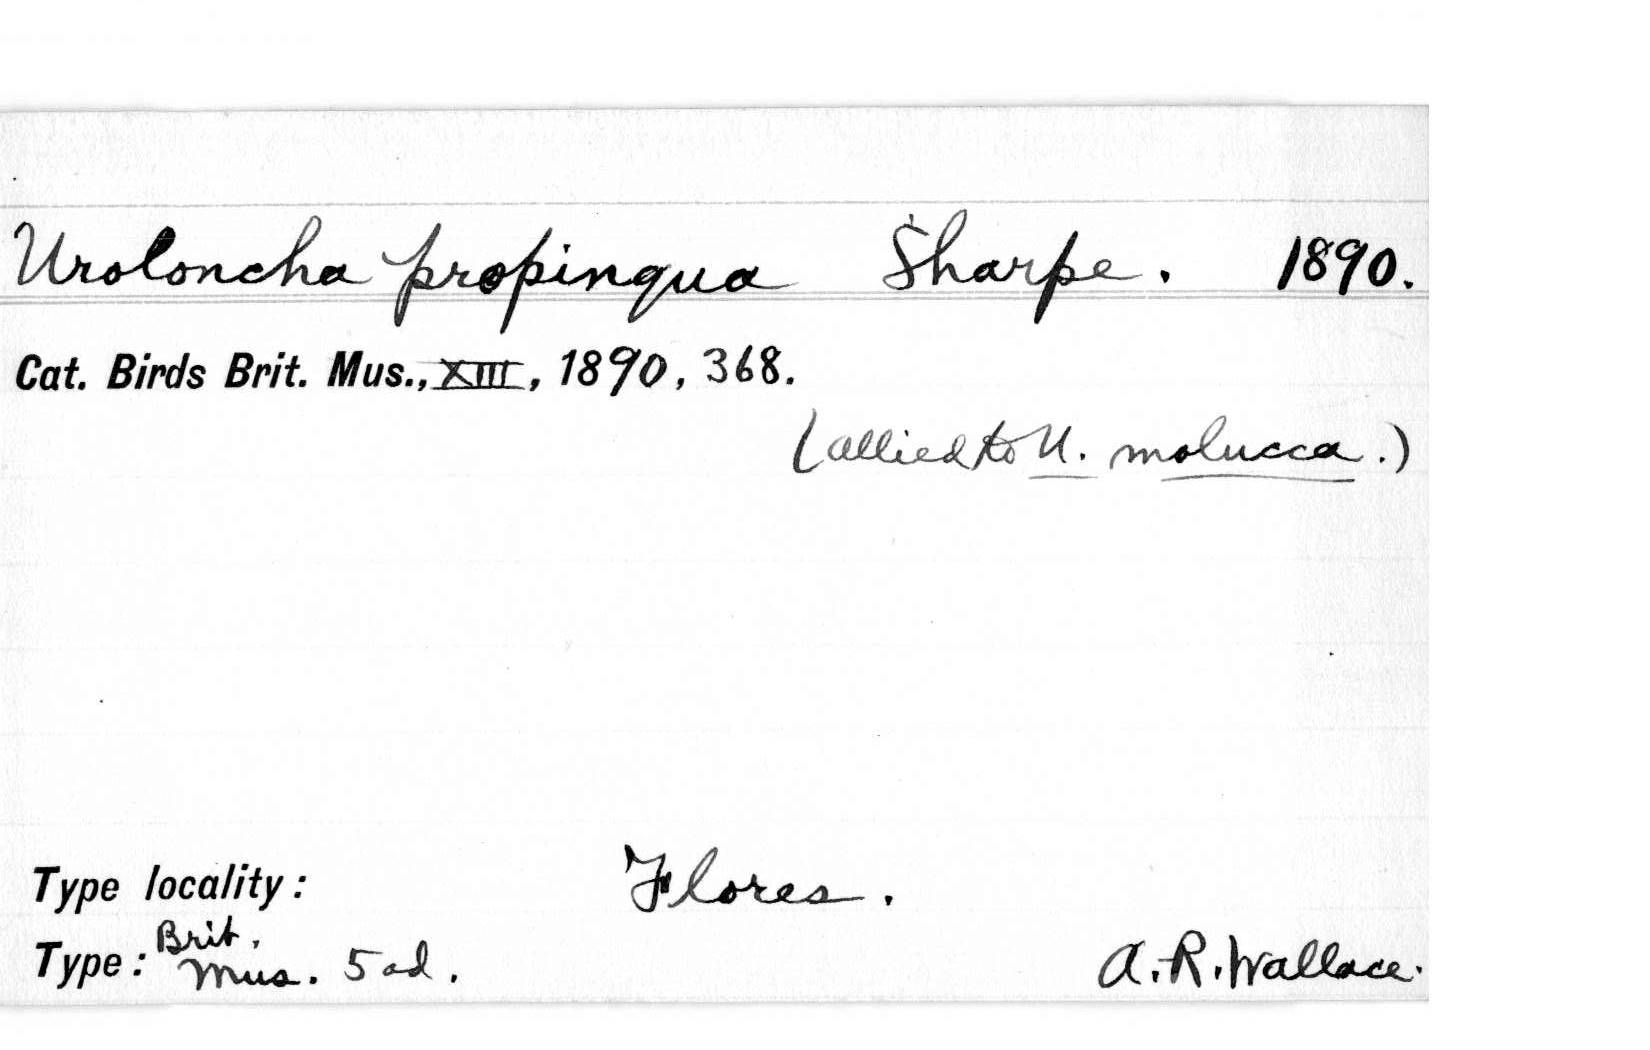 Uroloncha propinqua Sharpe. 1890.
Cat. Birds Brit. Mus., XIII, 1890, 368.
(allied to U. molucca.)
Type locality: Flores.
Type: Brit. Mus. 5 ad. A. R. Wallace.